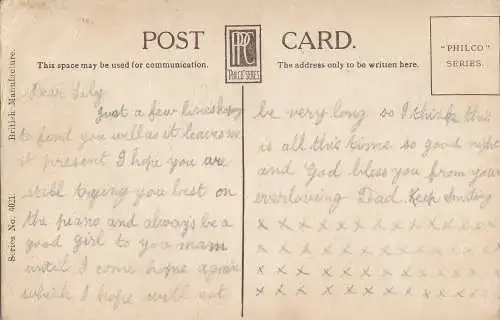 POST CARD.
This space may be used for communication.
The address only to be written here.
PPC
PHILCO SERIES
"PHILCO"
SERIES.
Series No. 4021. British Manufacture.
Dear Lily
Just a few lines hoping
to find you well as it leaves me
at present I hope you are
still trying you best on
the piano and always be a
good girl to you mam
until I come hopme again
which I hope will not
be very long so I think this
is all this time so good night
and God bless you from your
everloving Dad. Keep Smiling
x x x x x x x x x x x x
x x x x x x x x x x x x
x x x x x x x x x x x x
x x x x x x x x x x x x